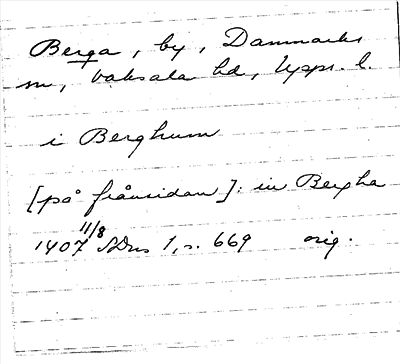 Berga, by, Danmarks
sn, Vaksala hd, Upps. l.
i Berghum
[på frånsidan]: in Bergha
11/8
1407 SDns 1, s. 669 orig.